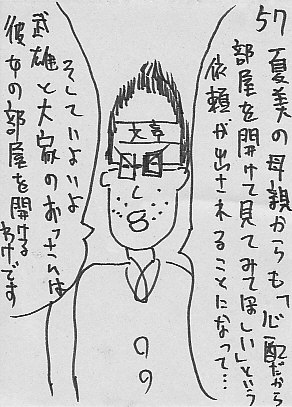 57
夏美の母親からも「心配だから
部屋を開けて見てみてほしい」という
依頼が出されることになって…
文享
そしていよいよ
武雄と大家のおっさんは
彼女の部屋を開ける
わけです